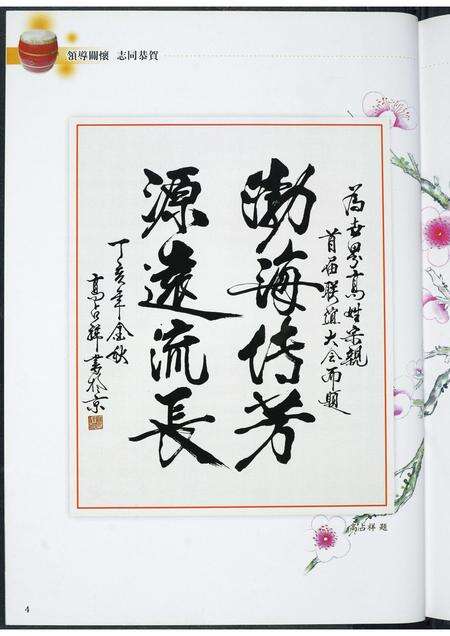 領導關懷 志同恭賀
为世界高姓宗親
首届联谊大会而题
渤海传芳
源遠流長
丁亥年金秋
高占祥書於京
高占祥 题
4